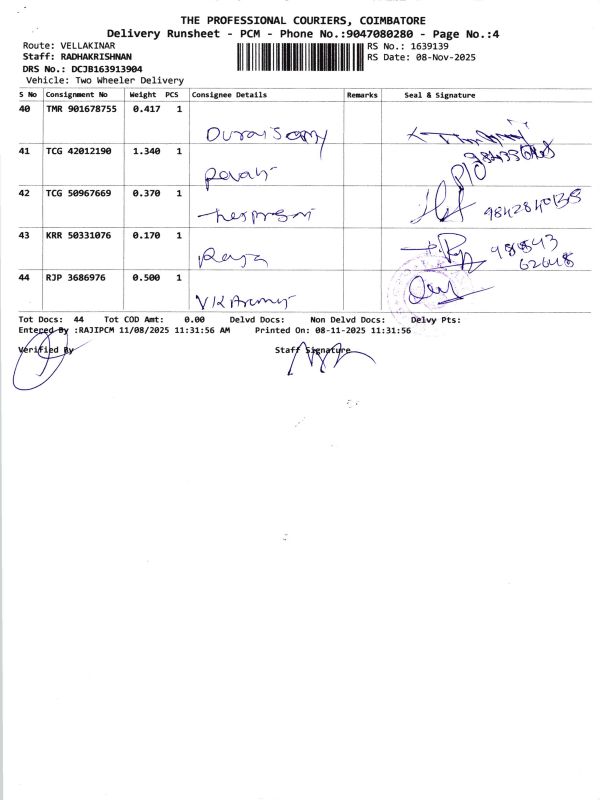 THE PROFESSIONAL COURIERS, COIMBATORE
Delivery Runsheet - PCM - Phone No.:9047080280 - Page No.:4
Route: VELLAKINAR
RS No.: 1639139
Staff: RADHAKRISHNAN
RS Date: 08-Nov-2025
DRS No.: DCJB163913904
Vehicle: Two Wheeler Delivery
S No Consignment No Weight PCS Consignee Details Remarks Seal & Signature
40 TMR 901678755 0.417 1
Duraisamy
41 TCG 42012190 1.340 1
Revathi
42 TCG 50967669 0.370 1
9842840138
43 KRR 50331076 0.170 1
Raja
44 RJP 3686976 0.500 1
Tot Docs: 44 Tot COD Amt: 0.00 Delvd Docs: Non Delvd Docs: Delvy Pts:
Entered By :RAJIPCM 11/08/2025 11:31:56 AM Printed On: 08-11-2025 11:31:56
Verified By Staff Signature